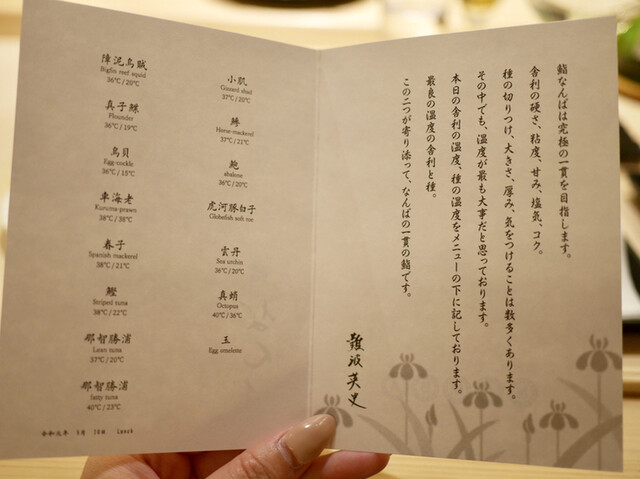 鮨なんばは究極の一貫を目指します。
舎利の硬さ、粘度、甘み、塩気、コク。
種の切りつけ、大きさ、厚み、気をつけることは数多くあります。
その中でも、温度が最も大事だと思っております。
本日の舎利の温度、種の温度をメニューの下に記しております。
最良の温度の舎利と種。
この二つが寄り添って、なんばの一貫の鮨です。
難波英史
障泥烏賊
Bigfin reef squid
36℃/20℃
真子鰈
Flounder
36℃/19℃
鳥貝
Egg-cockle
36℃/15℃
車海老
Kuruma-prawn
38℃/38℃
春子
Spanish mackerel
38℃/21℃
鰹
Striped tuna
38℃/22℃
那智勝浦
Lean tuna
37℃/20℃
那智勝浦
fatty tuna
40℃/23℃
小肌
Gizzard shad
37℃/20℃
鯵
Horse-mackerel
37℃/21℃
鮑
abalone
36℃/20℃
虎河豚白子
Globefish soft roe
雲丹
Sea urchin
36℃/20℃
真蛸
Octopus
40℃/36℃
玉
Egg omelette
令和元年 5月 10日 Lunch